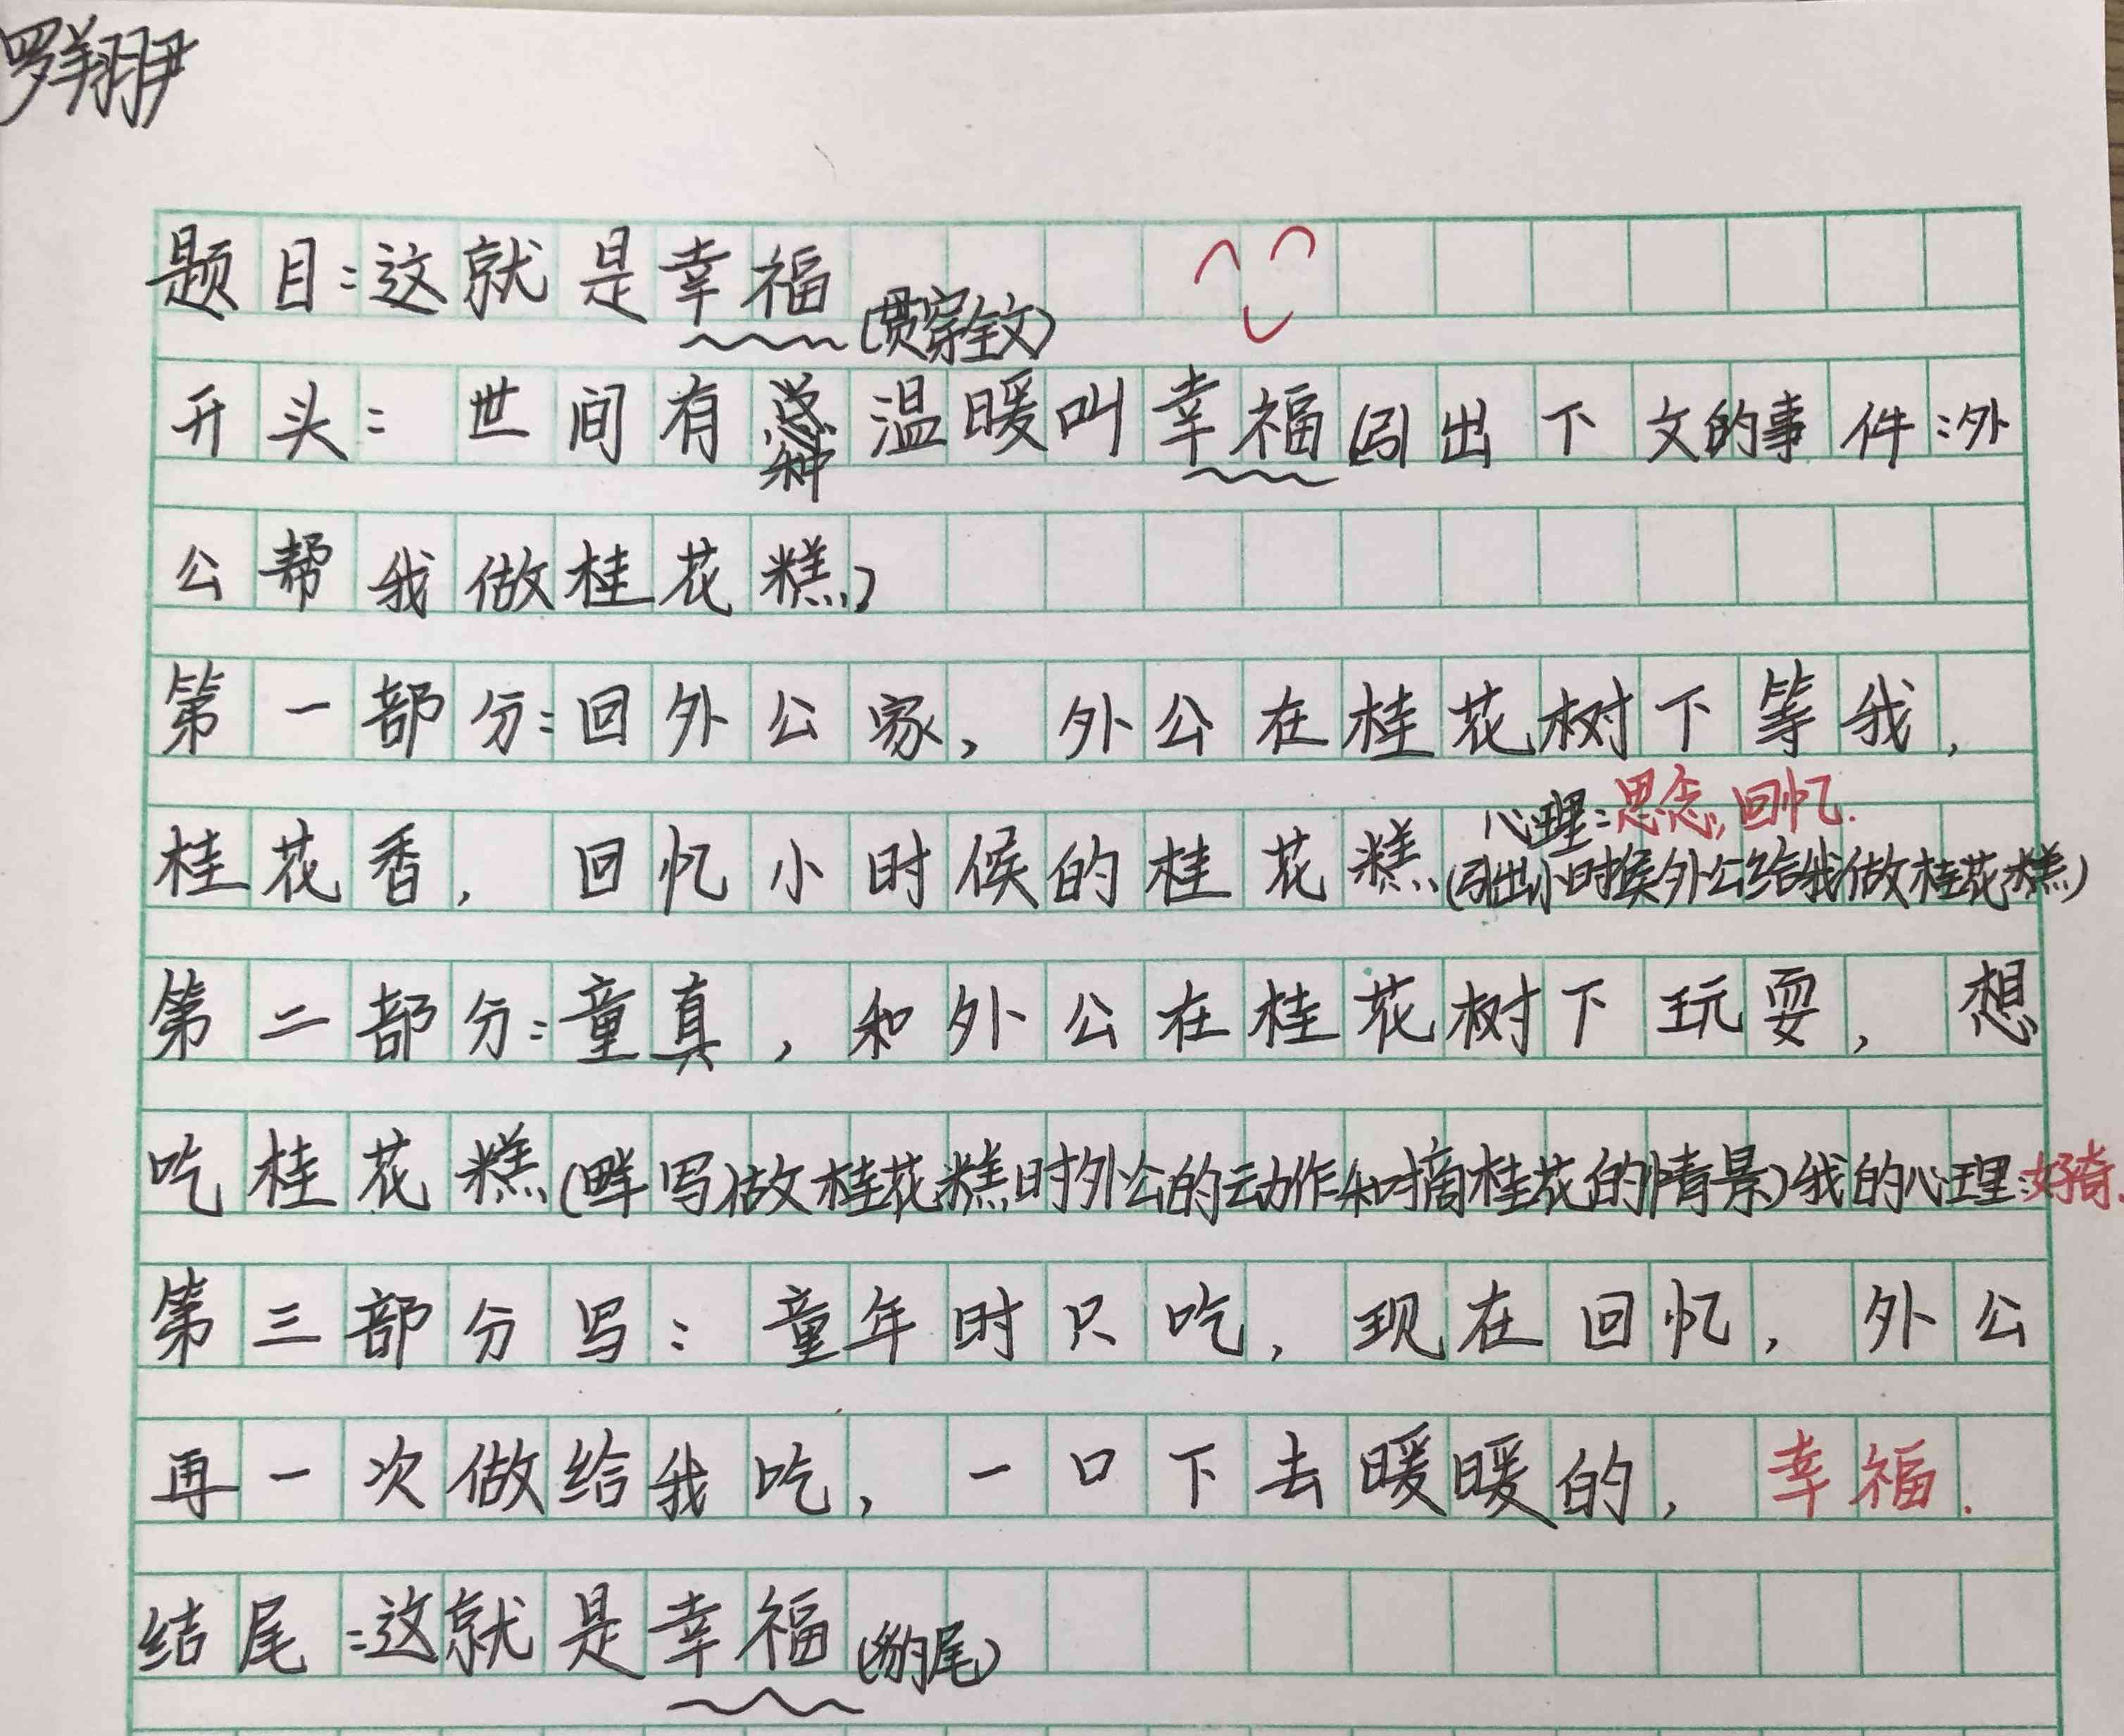 罗翔尹
题目:这就是幸福(贯穿全文)
开头:世间有种温暖叫幸福(引出下文的事件:外
公帮我做桂花糕)
第一部分:回外公家,外公在桂花树下等我,
心理:思念,回忆.
桂花香,回忆小时候的桂花糕(引出小时候外公给我做桂花糕)
第二部分:童真,和外公在桂花树下玩耍,想
吃桂花糕(详写做桂花糕时外公的动作和摘桂花的情景)我的心理:好奇.
第三部分写:童年时只吃,现在回忆,外公
再一次做给我吃,一口下去暖暖的,幸福.
结尾:这就是幸福(豹尾)